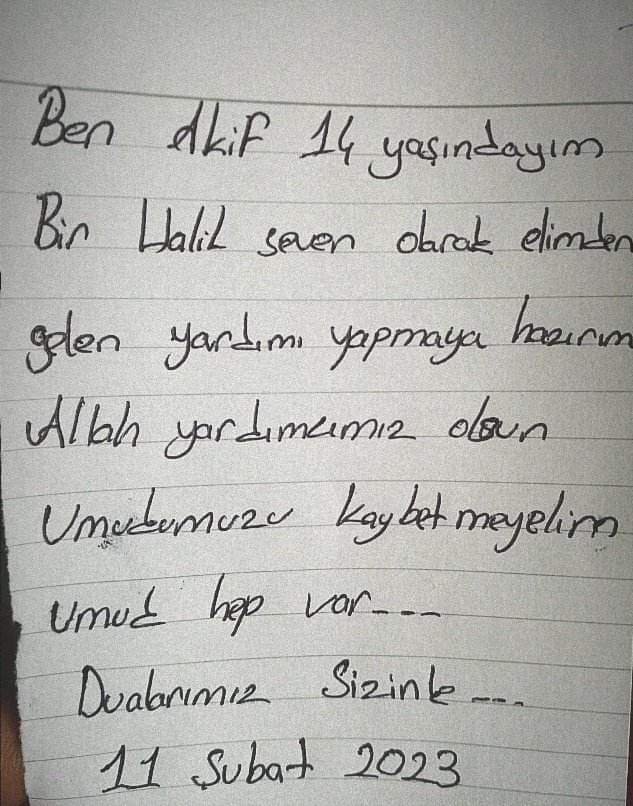 Ben Akif 14 yaşındayım
Bir Halil seven olarak elimden
gelen yardımı yapmaya hazırım
Allah yardımcımız olsun
Umudumuzu kaybetmeyelim
Umud hep var---
Dualarımız Sizinle---
11 Şubat 2023